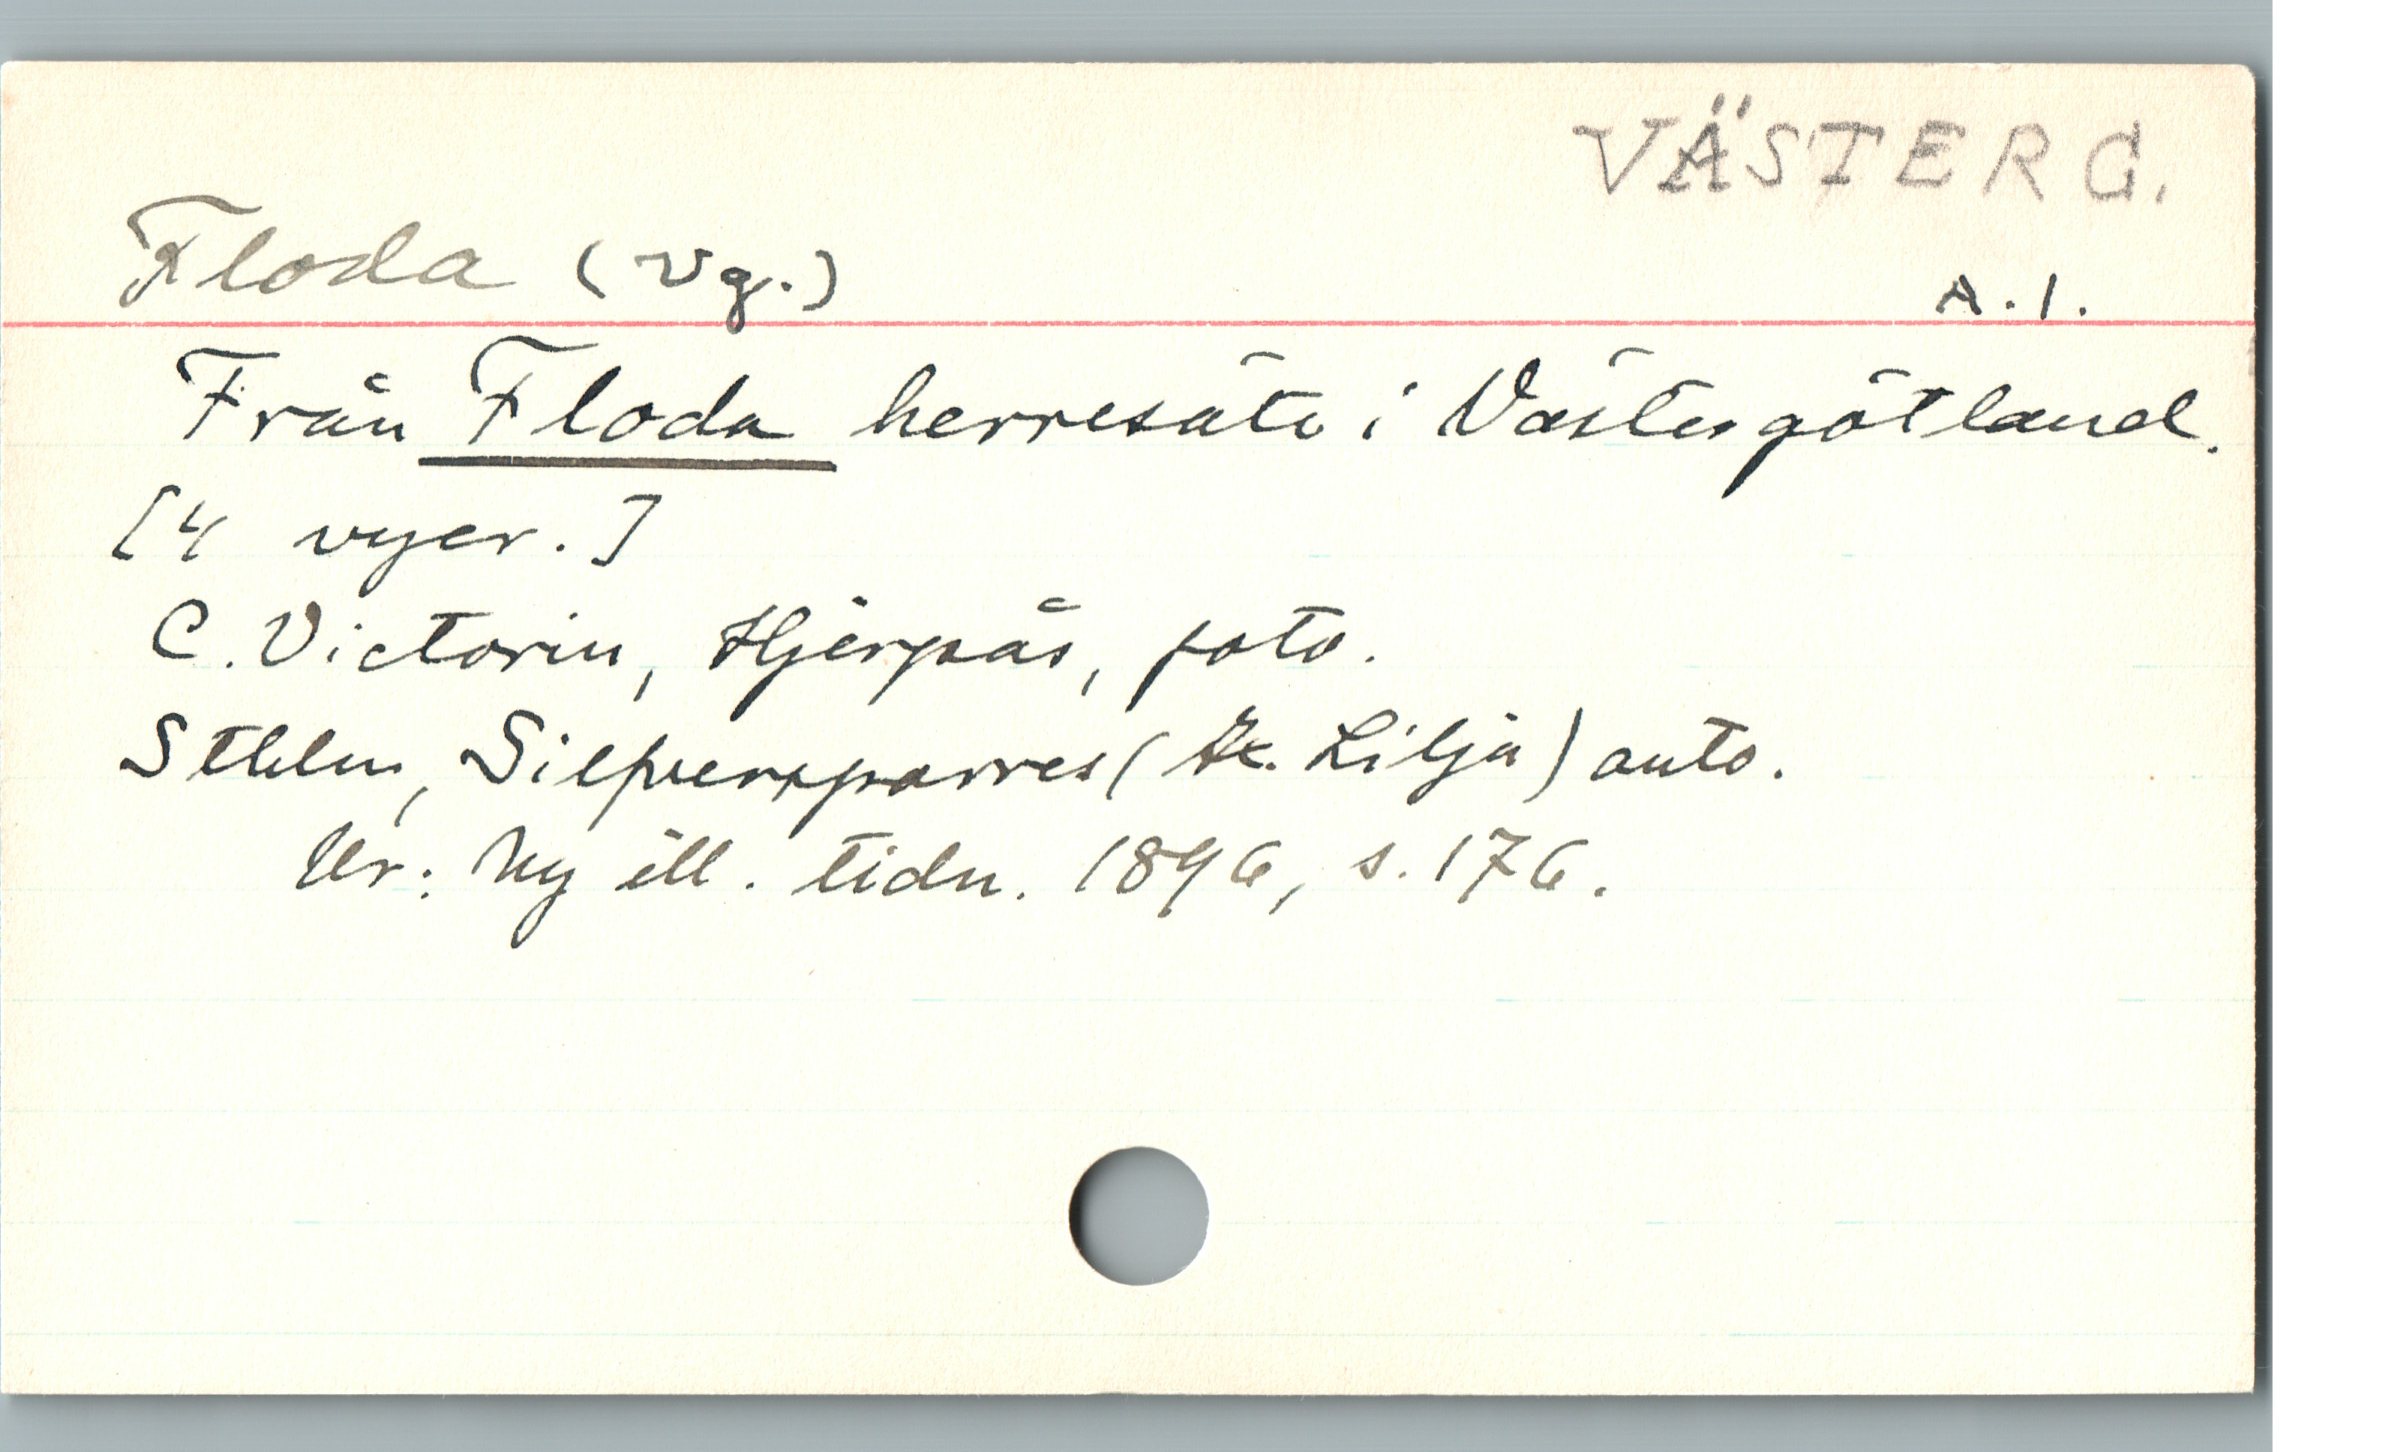 VÄSTERG.
Floda (Vg.)
A.1.
Från Floda herresäte i Västergötland.
[4 vyer.]
C. Victorin, Hjerpås, foto.
Sthlm, Silfversparres ( Lilja) auto.
Ur: Ny ill. tidn. 1896, s. 176.